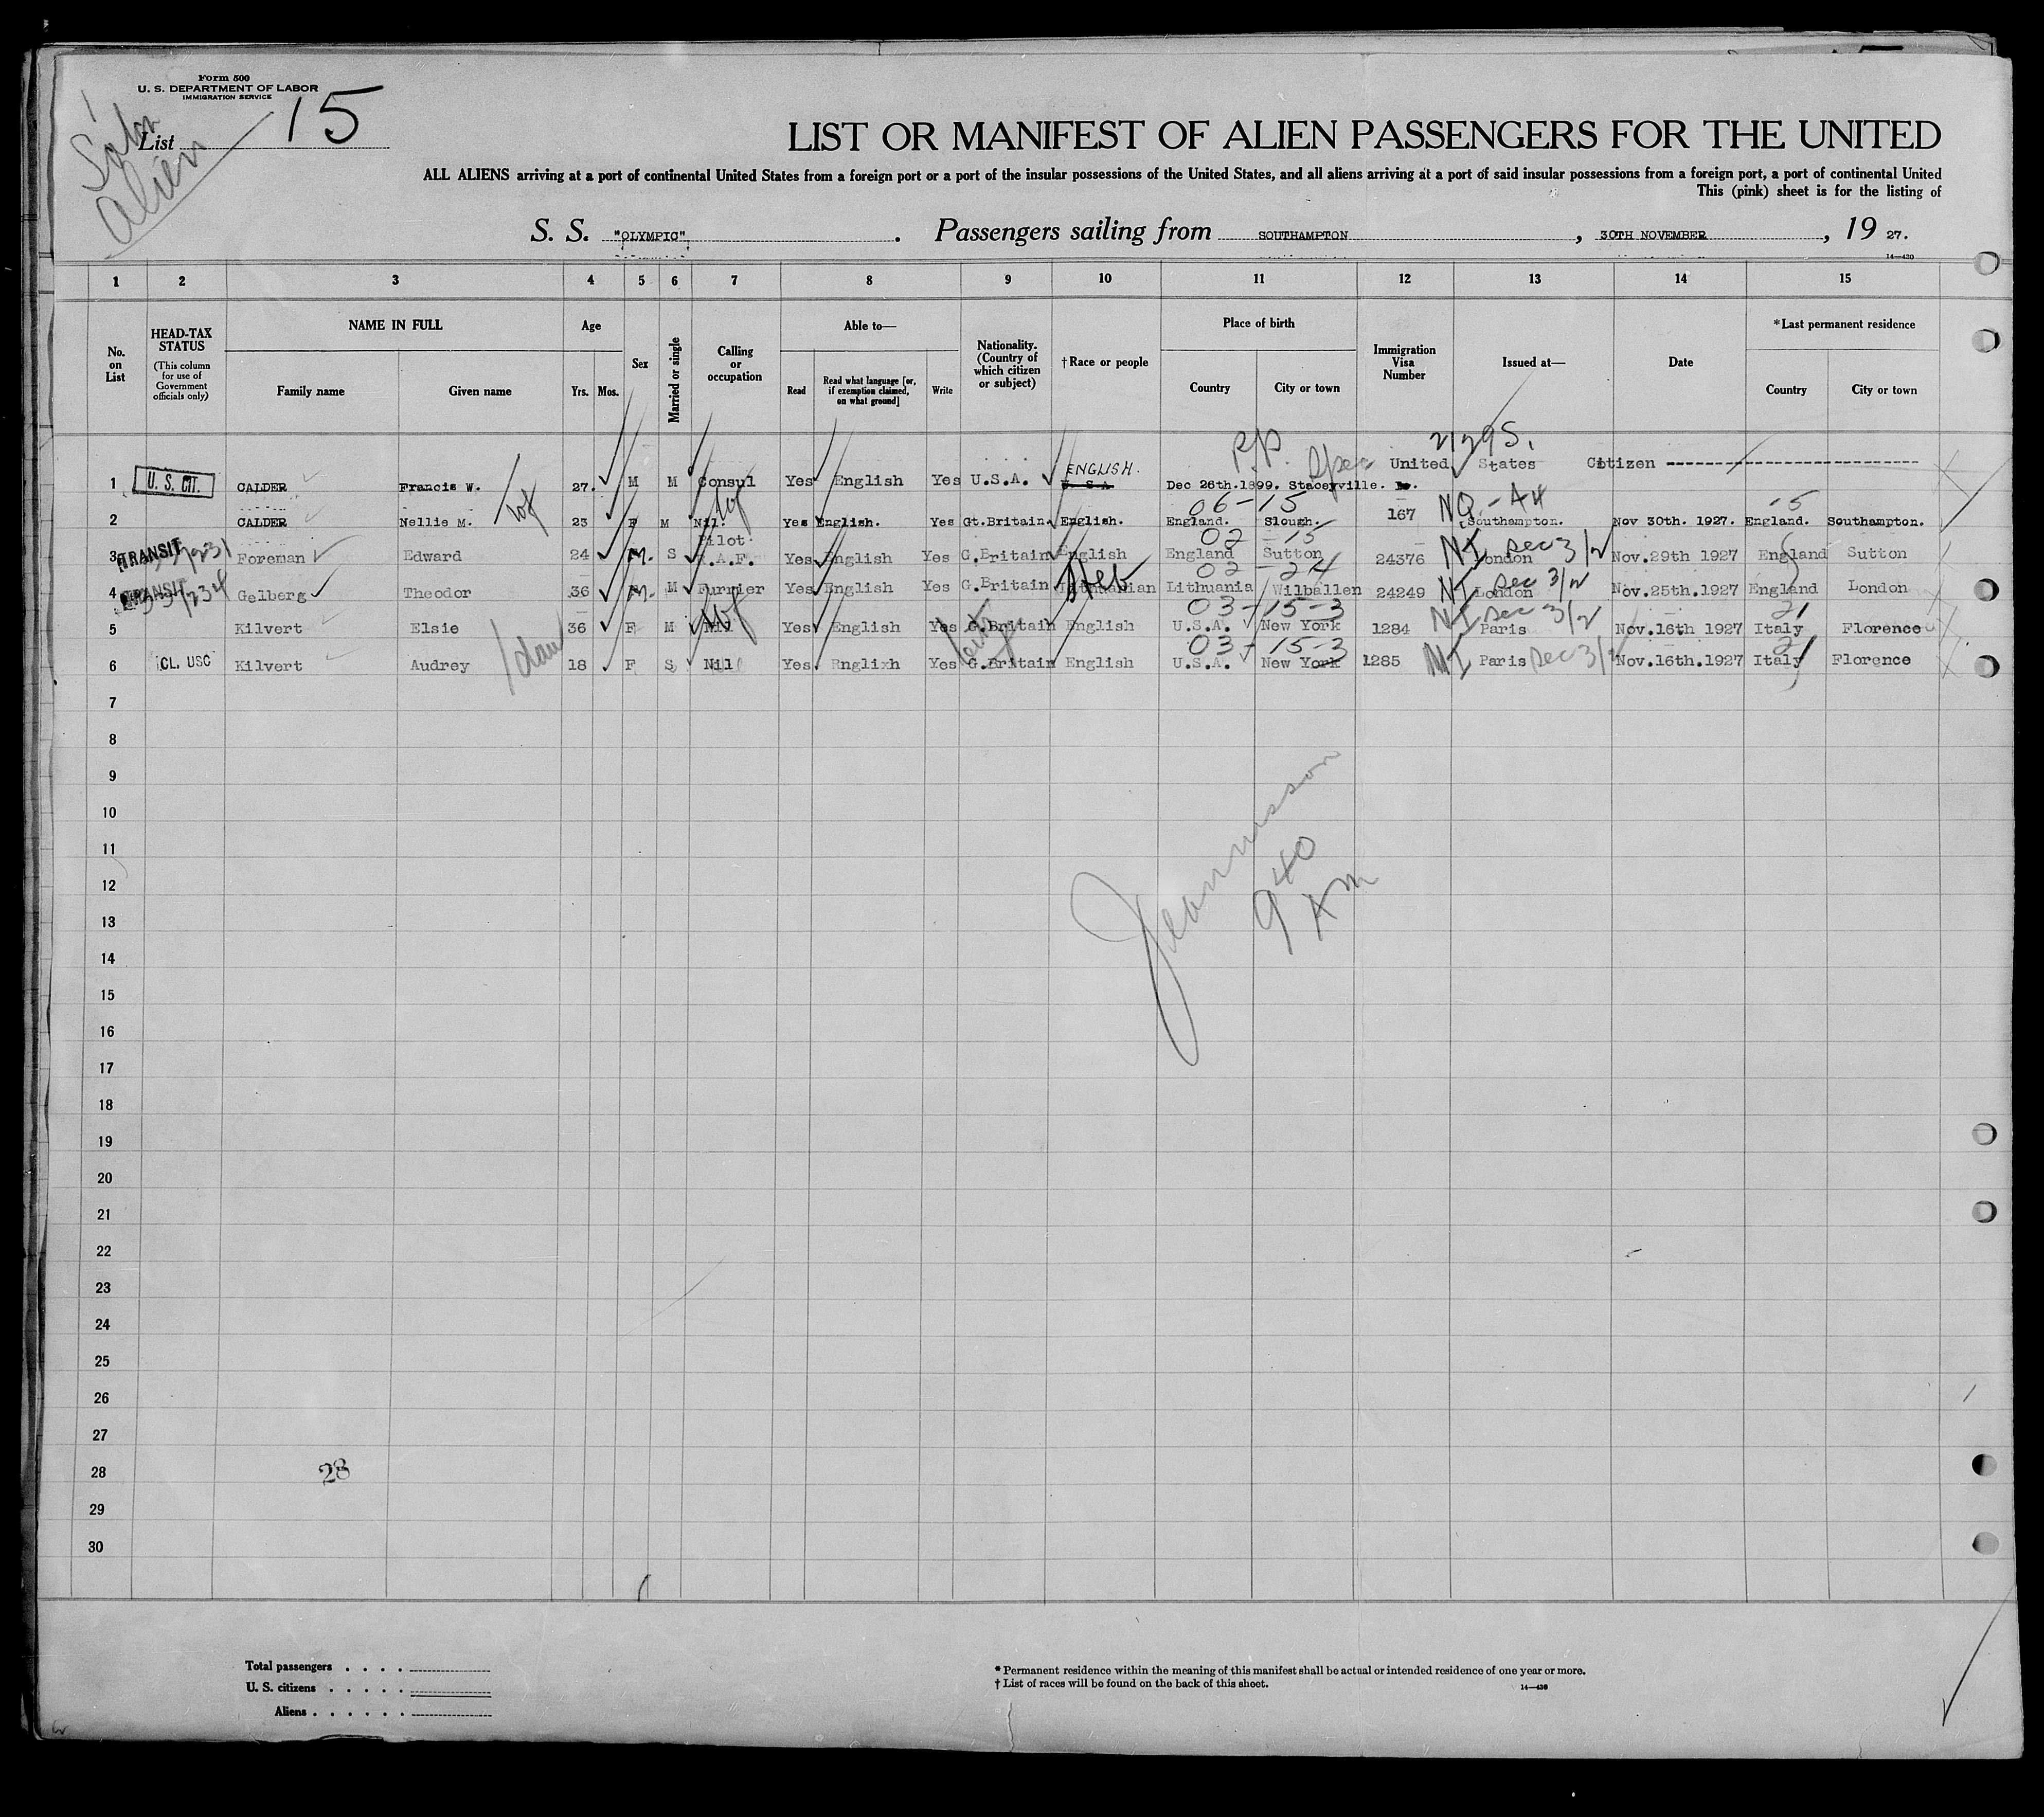 Form 500
U. S. DEPARTMENT OF LABOR
IMMIGRATION SERVICE
Alien
List 15
LIST OR MANIFEST OF ALIEN PASSENGERS FOR THE UNITED
ALL ALIENS arriving at a port of continental United States from a foreign port or a port of the insular possessions of the United States, and all aliens arriving at a port of said insular possessions from a foreign port, a port of continental United
This (pink) sheet is for the listing of
S. S. "OLYMPIC". Passengers sailing from SOUTHAMPTON, 30TH NOVEMBER, 19 27.
14—420
1 2 3 4 5 6 7 8 9 10 11 12 13 14 15
No. on List
HEAD-TAX STATUS (This column for use of Government officials only)
NAME IN FULL Family name Given name
Age Yrs. Mos.
Sex
Married or single
Calling or occupation
Able to— Read Read what language [or, if exemption claimed, on what ground] Write
Nationality. (Country of which citizen or subject)
†Race or people
Place of birth Country City or town
Immigration Visa Number
Issued at—
Date
*Last permanent residence Country City or town
P.P. 21295.
1 U. S. CIT. CALDER Francis W. 27. M M Consul Yes English Yes U.S.A. ENGLISH. U.S.A Dec 26th.1899. Staceyville. United States Citizen
06-15 NQ-A4 15
2 CALDER Nellie M. 23 F M Nil. Yes English. Yes Gt.Britain English. England. Slough. 167 Southampton. Nov 30th. 1927. England. Southampton.
02-15
3 TRANSIT Foreman Edward 24 M. S Pilot R.A.F. Yes English Yes G.Britain English England Sutton 24376 NI London Sec 3/2 Nov.29th 1927 England Sutton
02-24
4 TRANSIT Gelberg Theodor 36 M. M Furrier Yes English Yes G.Britain Heb Lithuanian Lithuania Wilballen 24249 NI London Sec 3/2 Nov.25th.1927 England London
03-15-3
5 Kilvert Elsie 36 F M Nil Yes English Yes G.Britain English U.S.A. New York 1284 NI Paris Sec 3/2 Nov.16th 1927 Italy Florence
03-15-3
6 CL. USC Kilvert Audrey 18 F S Nil Yes Rnglixh Yes G.Britain English U.S.A. New York 1285 NI Paris Sec 3/2 Nov.16th.1927 Italy Florence
7
8
9
10
11
12
13
14
15
16
17
18
19
20
21
22
23
24
25
26
27
28
29
30
9 40 AM
28
Total passengers . . . .
U. S. citizens . . . . .
Aliens . . . . . .
* Permanent residence within the meaning of this manifest shall be actual or intended residence of one year or more.
† List of races will be found on the back of this sheet.
14—420